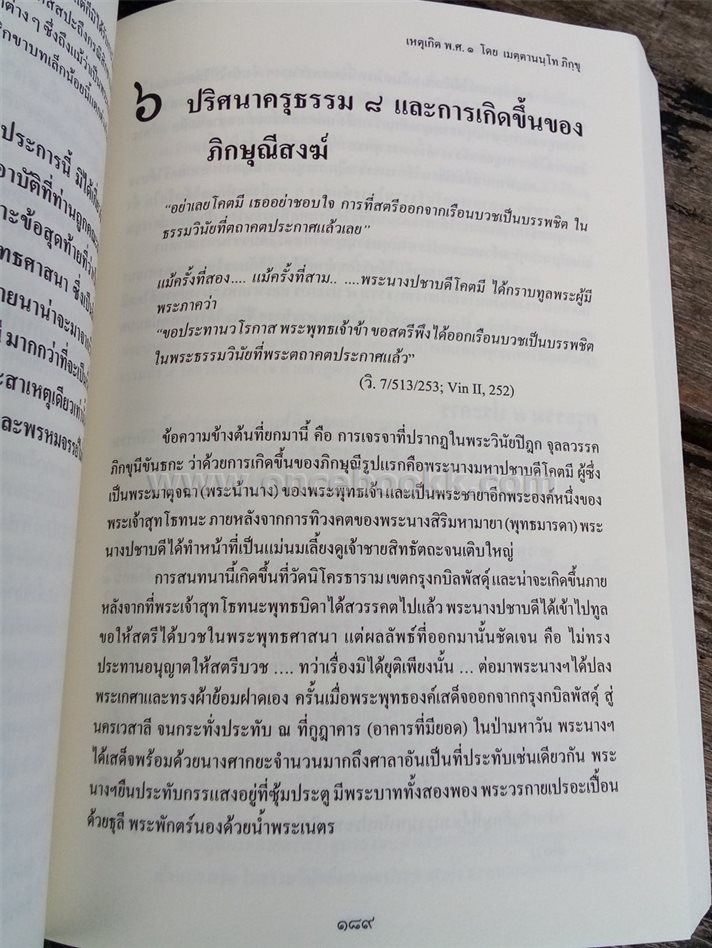 เหตุเกิด พ.ศ. ๑ โดย เมตฺตานนฺโท ภิกฺขุ
๖ ปริศนาครุธรรม ๘ และการเกิดขึ้นของ
ภิกษุณีสงฆ์
“อย่าเลยโคตมี เธออย่าชอบใจ การที่สตรีออกจากเรือนบวชเป็นบรรพชิต ใน
ธรรมวินัยที่ตถาคตประกาศแล้วเลย”
แม้ครั้งที่สอง.... แม้ครั้งที่สาม.. ....พระนางปชาบดีโคตมี ได้กราบทูลพระผู้มี
พระภาคว่า
“ขอประทานวโรกาส พระพุทธเจ้าข้า ขอสตรีพึงได้ออกเรือนบวชเป็นบรรพชิต
ในพระธรรมวินัยที่พระตถาคตประกาศแล้ว”
(วิ. 7/513/253; Vin II, 252)
ข้อความข้างต้นที่ยกมานี้ คือ การเจรจาที่ปรากฏในพระวินัยปิฎก จุลลวรรค
ภิกขุนีขันธกะ ว่าด้วยการเกิดขึ้นของภิกษุณีรูปแรกคือพระนางมหาปชาบดีโคตมี ผู้ซึ่ง
เป็นพระมาตุจฉา (พระน้านาง) ของพระพุทธเจ้า และเป็นพระชายาอีกพระองค์หนึ่งของ
พระเจ้าสุทโธทนะ ภายหลังจากการทิวงคตของพระนางสิริมหามายา (พุทธมารดา) พระ
นางปชาบดีได้ทำหน้าที่เป็นแม่นมเลี้ยงดูเจ้าชายสิทธัตถะจนเติบใหญ่
การสนทนานี้เกิดขึ้นที่วัดนิโครธาราม เขตกรุงกบิลพัสดุ์ และน่าจะเกิดขึ้นภาย
หลังจากที่พระเจ้าสุทโธทนะพุทธบิดาได้สวรรคตไปแล้ว พระนางปชาบดีได้เข้าไปทูล
ขอให้สตรีได้บวชในพระพุทธศาสนา แต่ผลลัพธ์ที่ออกมานั้นชัดเจน คือ ไม่ทรง
ประทานอนุญาตให้สตรีบวช .... ทว่าเรื่องมิได้ยุติเพียงนั้น ... ต่อมาพระนางฯได้ปลง
พระเกศาและทรงผ้าย้อมฝาดเอง ครั้นเมื่อพระพุทธองค์เสด็จออกจากกรุงกบิลพัสดุ์ สู่
นครเวสาลี จนกระทั่งประทับ ณ ที่กูฎาคาร (อาคารที่มียอด) ในป่ามหาวัน พระนางฯ
ได้เสด็จพร้อมด้วยนางศากยะจำนวนมากถึงศาลาอันเป็นที่ประทับเช่นเดียวกัน พระ
นางฯยืนประทับกรรแสงอยู่ที่ซุ้มประตู มีพระบาททั้งสองพอง พระวรกายเปรอะเปื้อน
ด้วยธุลี พระพักตร์นองด้วยน้ำพระเนตร
๑๘๙